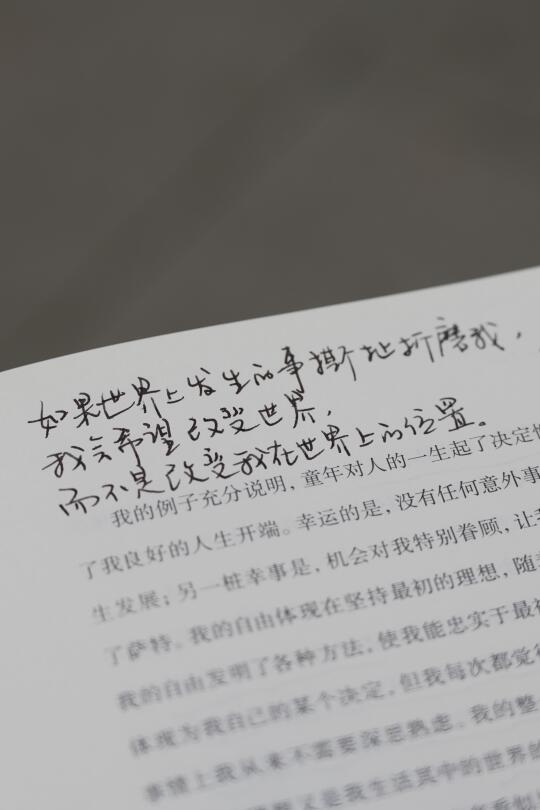 如果世界上发生的事撕扯折磨我，
我会希望改变世界，
而不是改变我在世界上的位置。
我的例子充分说明，童年对人的一生起了决定性
了我良好的人生开端。幸运的是，没有任何意外事
生发展；另一桩幸事是，机会对我特别眷顾，让我
了萨特。我的自由体现在坚持最初的理想，随
我的自由发明了各种方法，使我能忠实于最初
体现为我自己的某个决定，但我每次都觉得
事情上我从来不需要深思熟虑。我的整
又是我生活其中的世界的